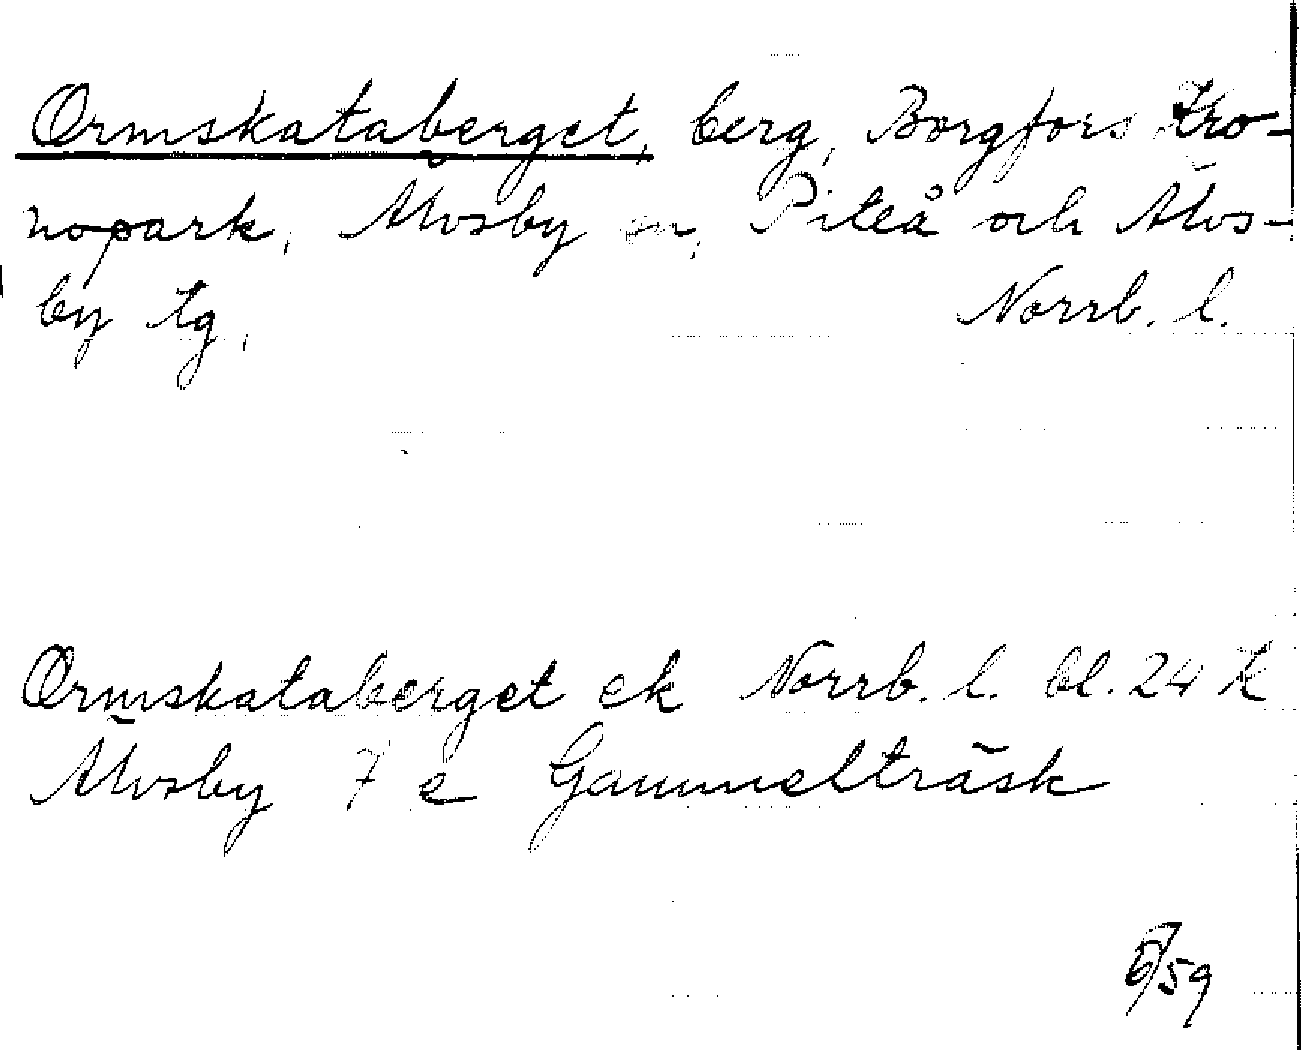 Ormskataberget, berg, Borgfors Kro-
nopark, Älvsby sn, Piteå och Älvs-
by tg,
Norrb. l.
Ormskataberget ek Norrb. l. bl. 24 K
Älvsby 7 e Gammelträsk
/59